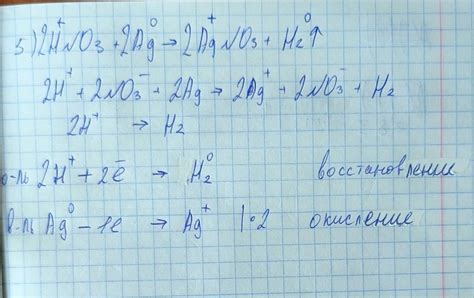 5) 2H⁺NO3 + 2Ag⁰ → 2Ag⁺NO3 + H2⁰↑
2H⁺ + 2NO3⁻ + 2Ag → 2Ag⁺ + 2NO3⁻ + H2
2H⁺ → H2
о-ль 2H⁺ + 2e̅ → H2⁰ восстановление
в-ль Ag⁰ – 1e → Ag⁺ |·2 окисление